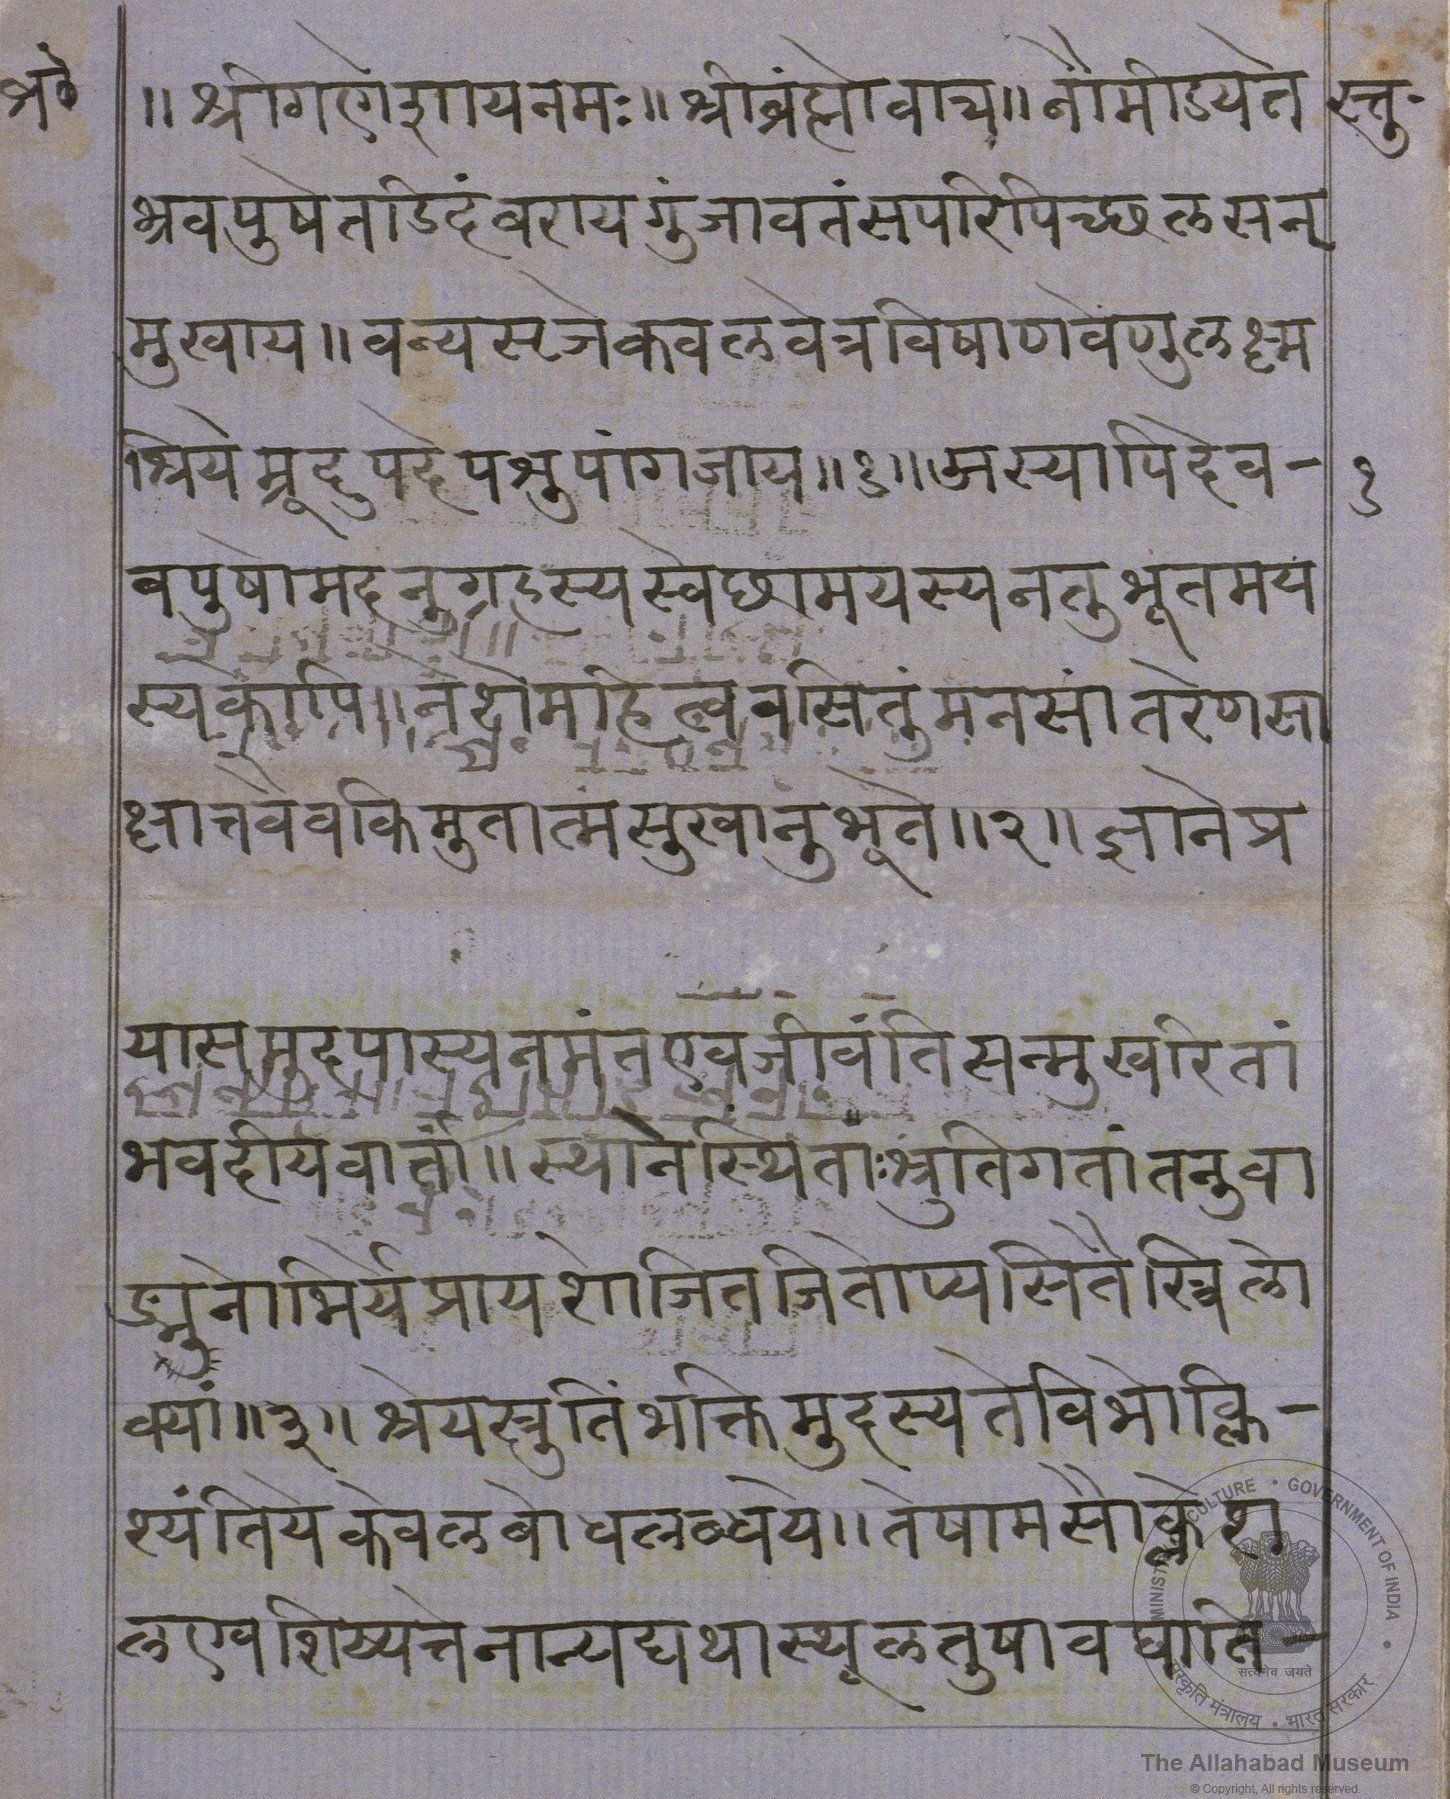 श्रे॰ ॥ श्रीगणेशायनमः ॥ श्रीब्रंह्मोवाच ॥ नौमीडयेते स्तु॰
भ्रवपुषेतडिदंवरायगुंजावतंसपरिपिच्छलसन्
मुखाय ॥ वन्यस्रजेकवलवेत्रविषाणवेणुलक्ष्म
श्रियेम्रूदुपदेपशुपांगजाय ॥ १ ॥ अस्यापिदेव- १
वपुषोमदनुग्रहस्यस्वेछामयस्यनतुभूतमय
स्यकोपि ॥ नेशेमहित्ववसितुंमनसांतरेणसा
क्षात्तवैवकिमुतात्मसुखानुभूते ॥ २ ॥ ज्ञानेप्र
यासमुदपास्यनमंतएवजीवंतिसन्मुखरितां
भवदीयवार्त्तां ॥ स्थानेस्थिताःश्रुतिगतांतनुवा
ङ्मनोभिर्येप्रायशोजितजितोप्यसितैस्त्रिलो
क्यां ॥ ३ ॥ श्रेयस्त्रुतिंभक्तिमुदस्यतेविभोक्लि-
श्यंतियेकेवलबोधलब्धये ॥ तेषामसौक्लेश
लएवशिष्यत्तेनान्यद्यथास्थूलतुषावघाति-
MINISTRY OF CULTURE • GOVERNMENT OF INDIA •
सत्यमेव जयते
संस्कृति मंत्रालय • भारत सरकार
The Allahabad Museum
© Copyright, All rights reserved.